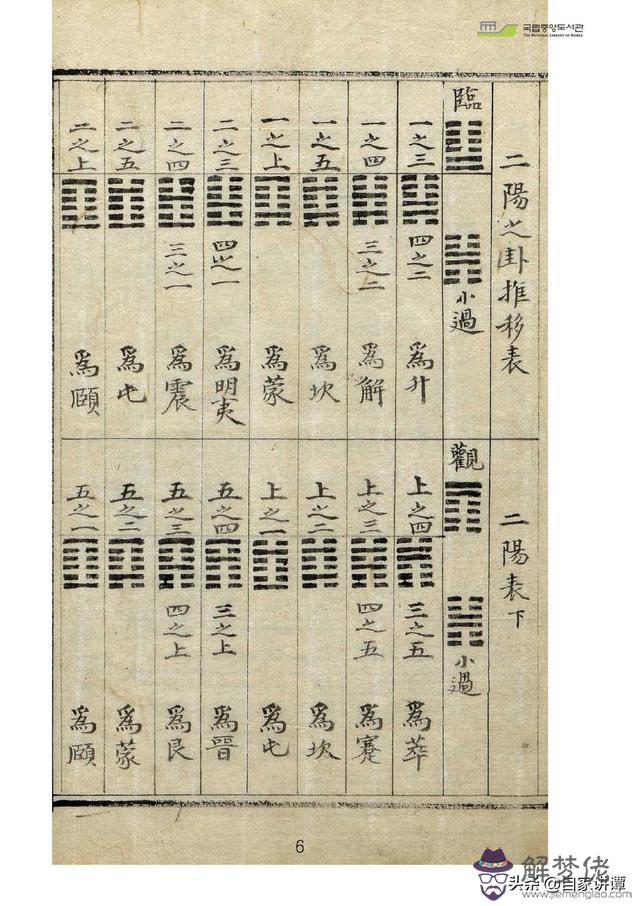 국립중앙도서관
THE NATIONAL LIBRARY OF KOREA
二陽之卦推移表
臨
小過
一之三 四之二 爲升
一之四 三之二 爲解
一之五 爲坎
一之上 爲蒙
二之三 四之一 爲明夷
二之四 三之一 爲震
二之五 爲屯
二之上 爲頤
二陽表下
觀
小過
上之四 三之五 爲萃
上之三 四之五 爲蹇
上之二 爲坎
上之一 爲屯
五之四 三之上 爲晉
五之三 四之上 爲艮
五之二 爲蒙
五之一 爲頤
6
解梦佬
头条 @自家讲谭
www.jiemenglao.com